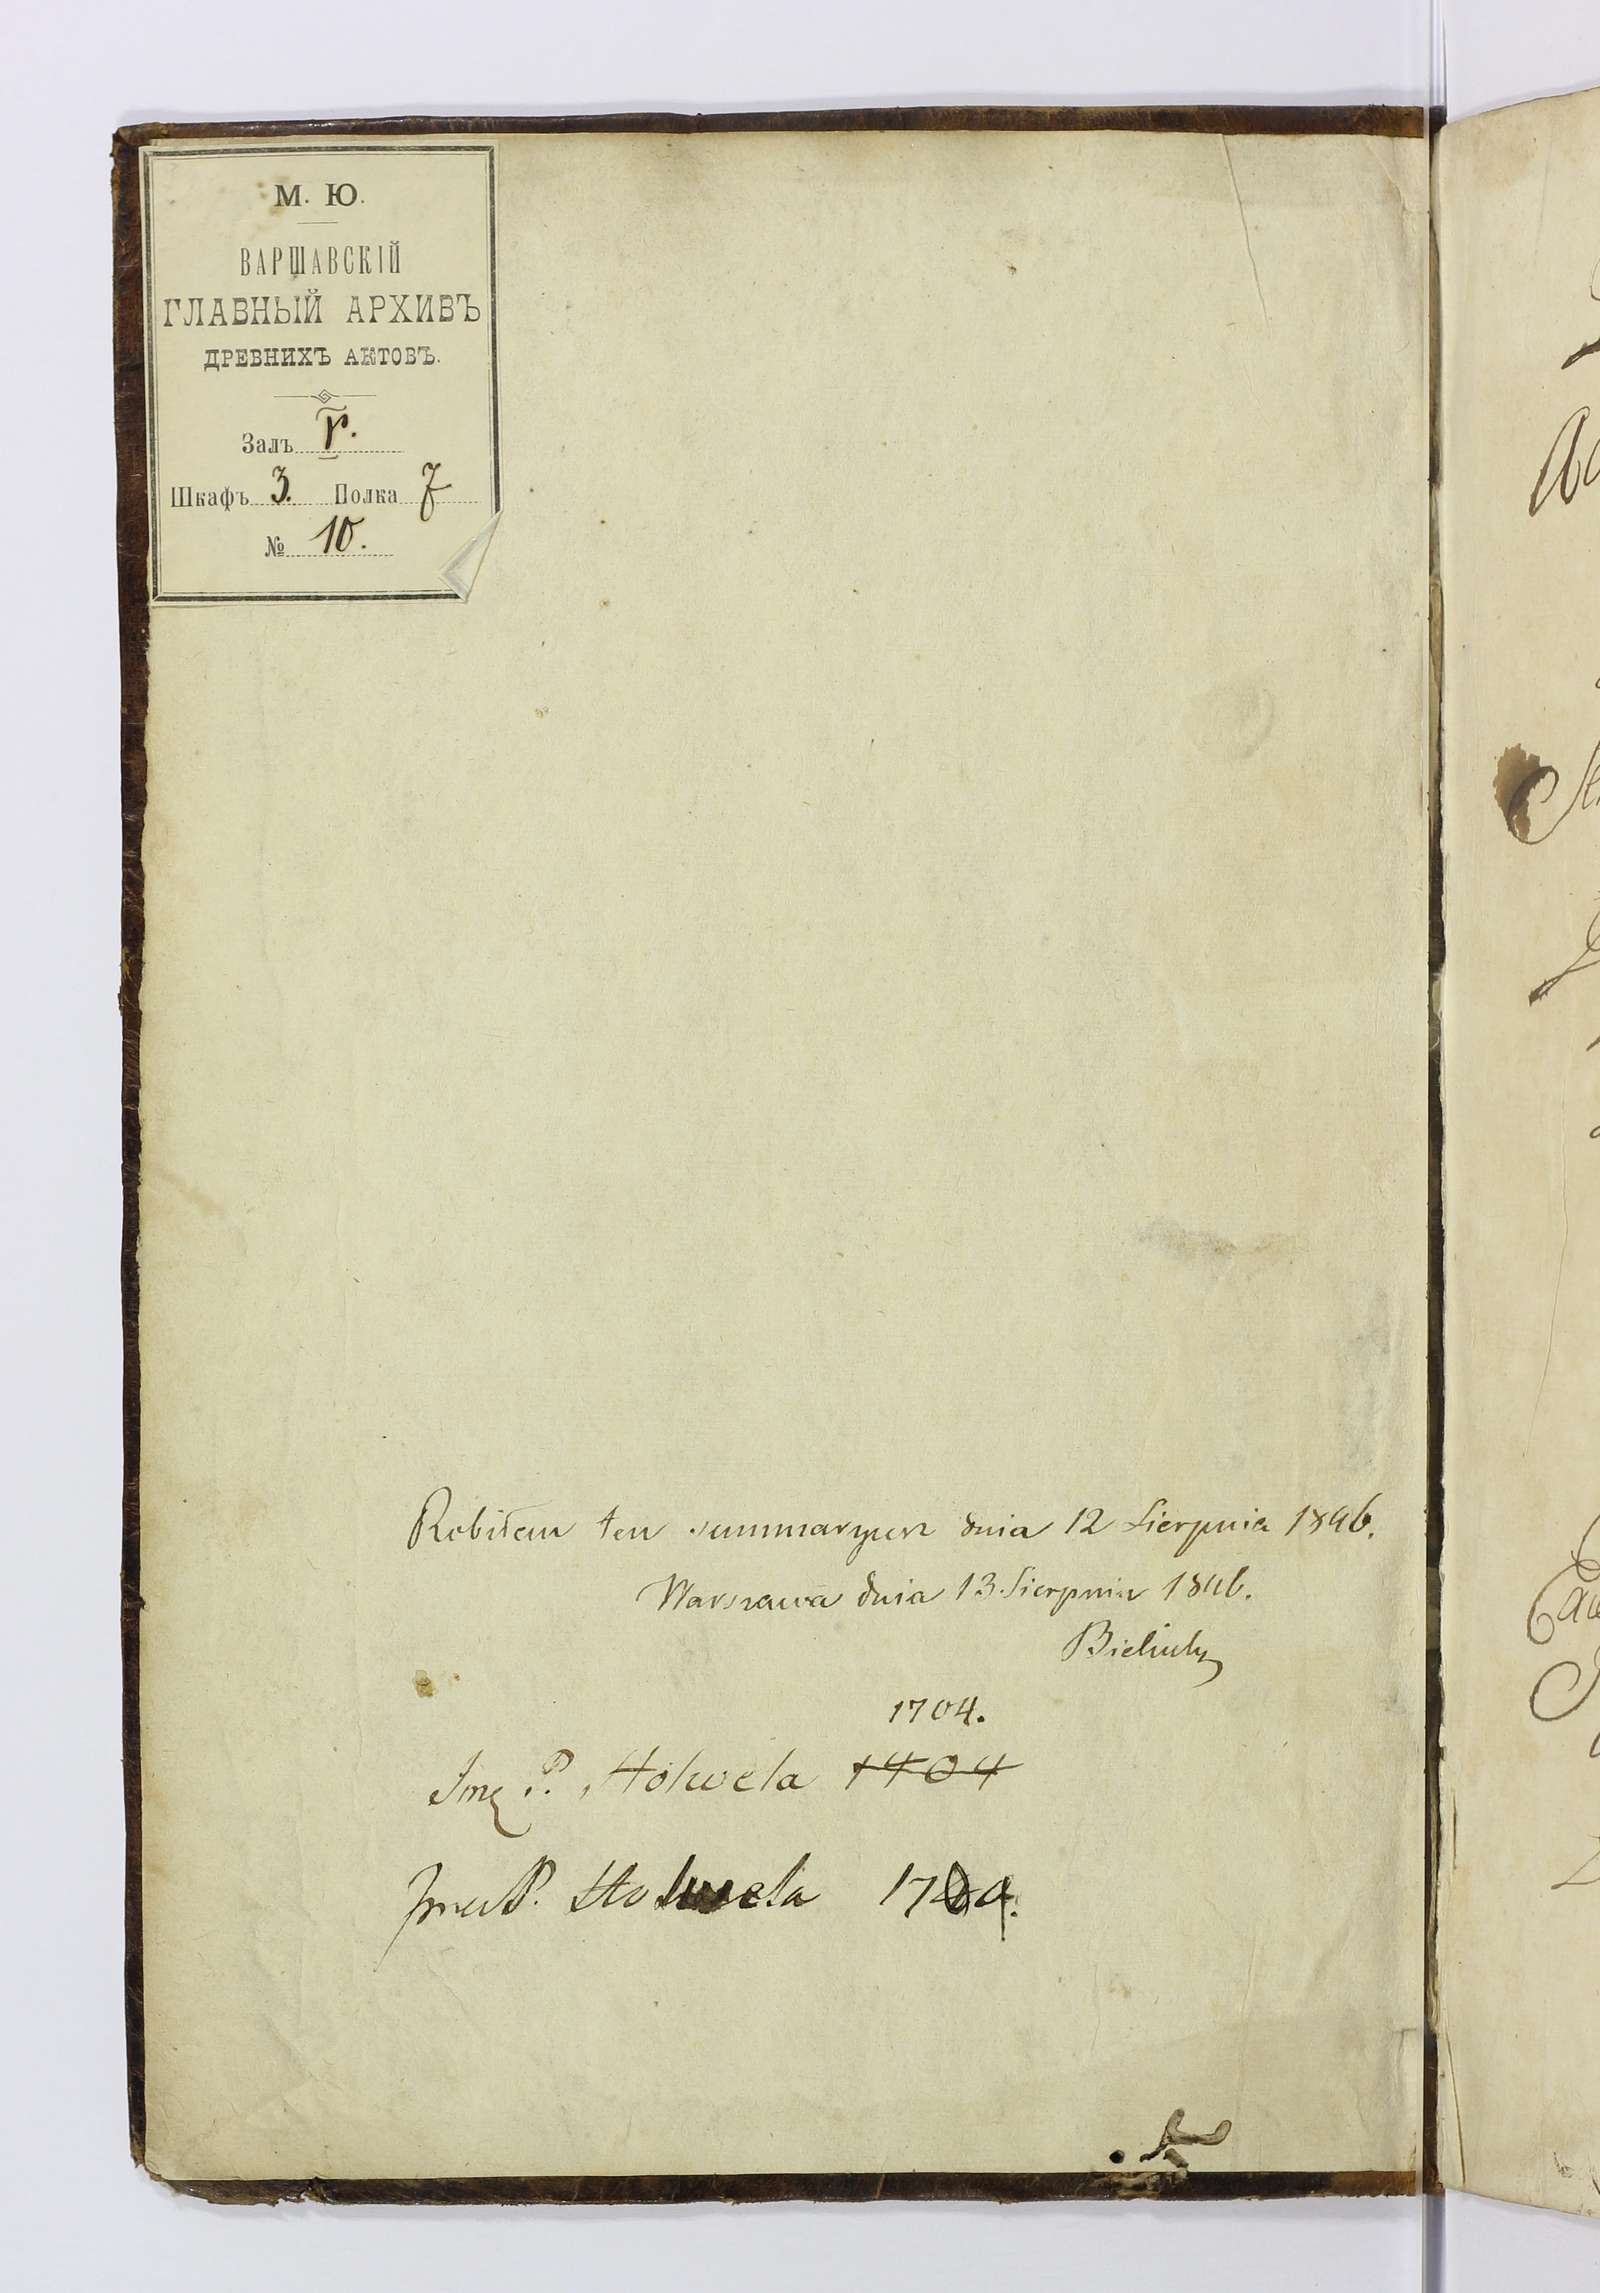 М. Ю.
ВАРШАВСКІЙ
ГЛАВНЫЙ АРХИВЪ
ДРЕВНИХЪ АКТОВЪ.
Залъ V.
Шкафъ 3. Полка 7
№ 10.
Robiłem ten summaryusz dnia 12 Sierpnia 1846.
Warszawa dnia 13 Sierpnia 1846.
1704.
P. Holwela 1404
P. Holwela 1704.